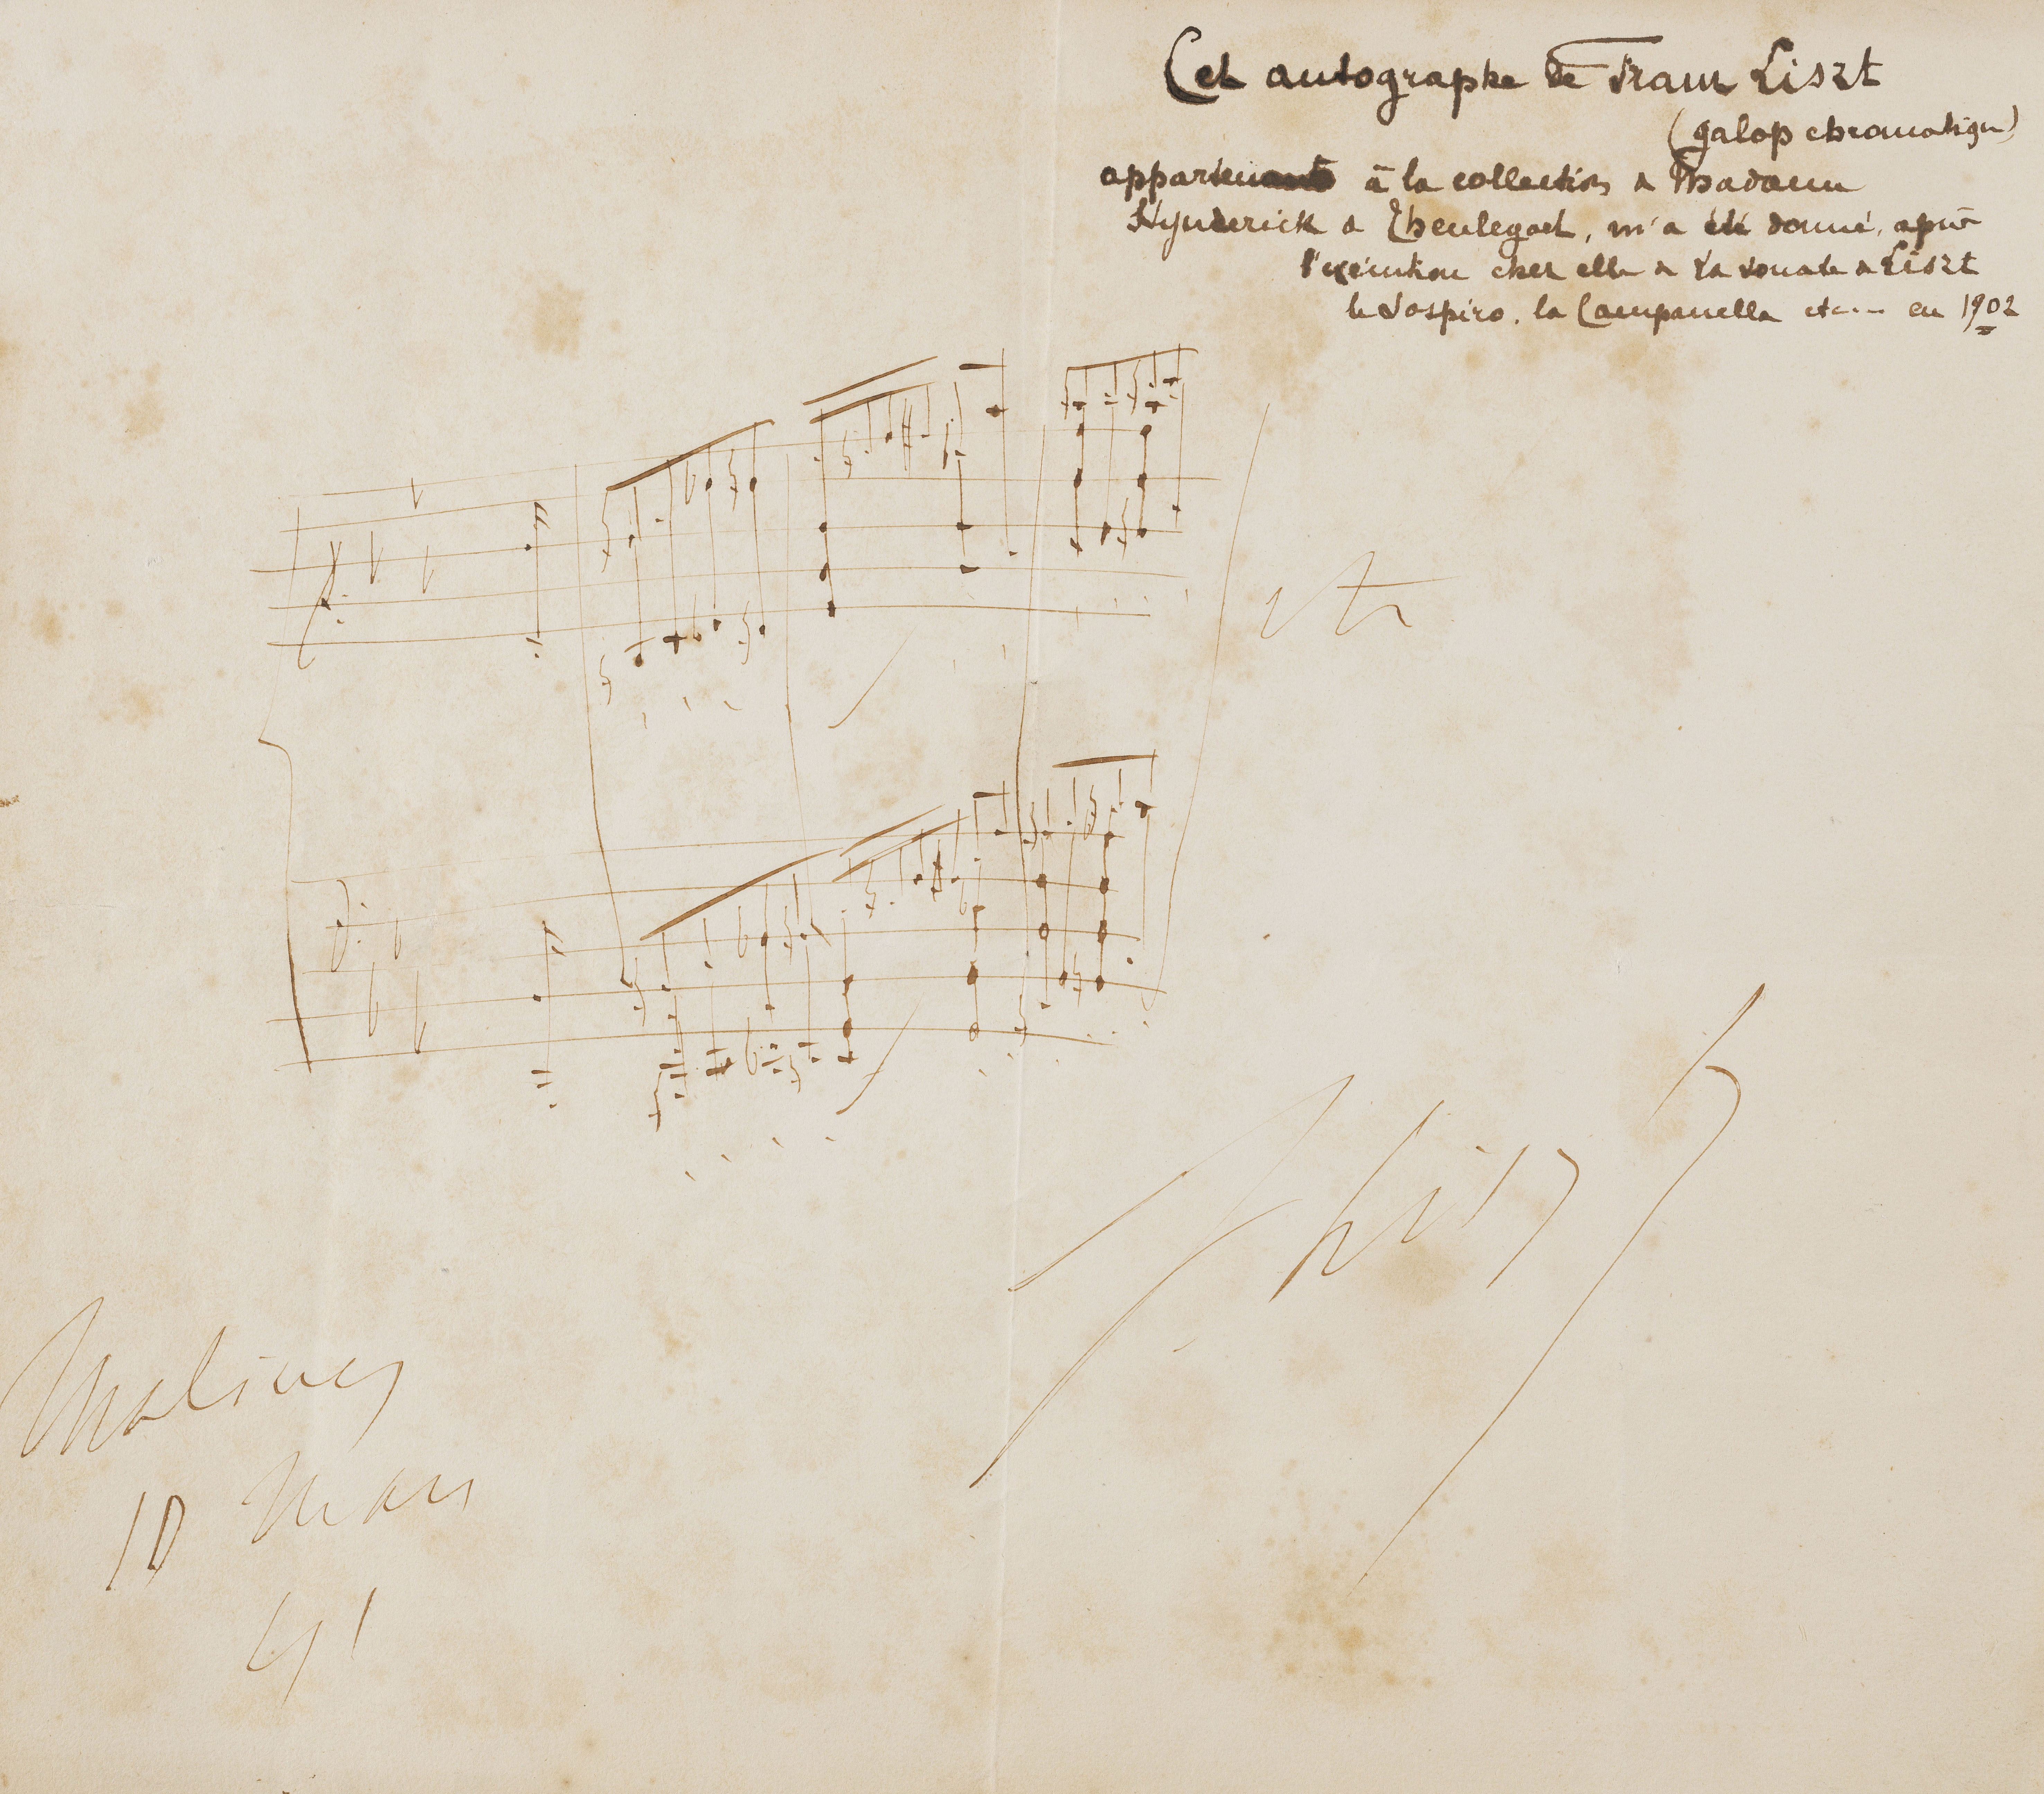 Cet autographe de Franz Liszt
(galop chromatique)
appartenant à la collection de Madame
Hynderick de Theulegoet, m'a été donné, après
l'exécution chez elle de la sonate de Liszt
le Sospiro, la Campanella etc... en 1902
etc
F Liszt
Malines
10 Mars
41